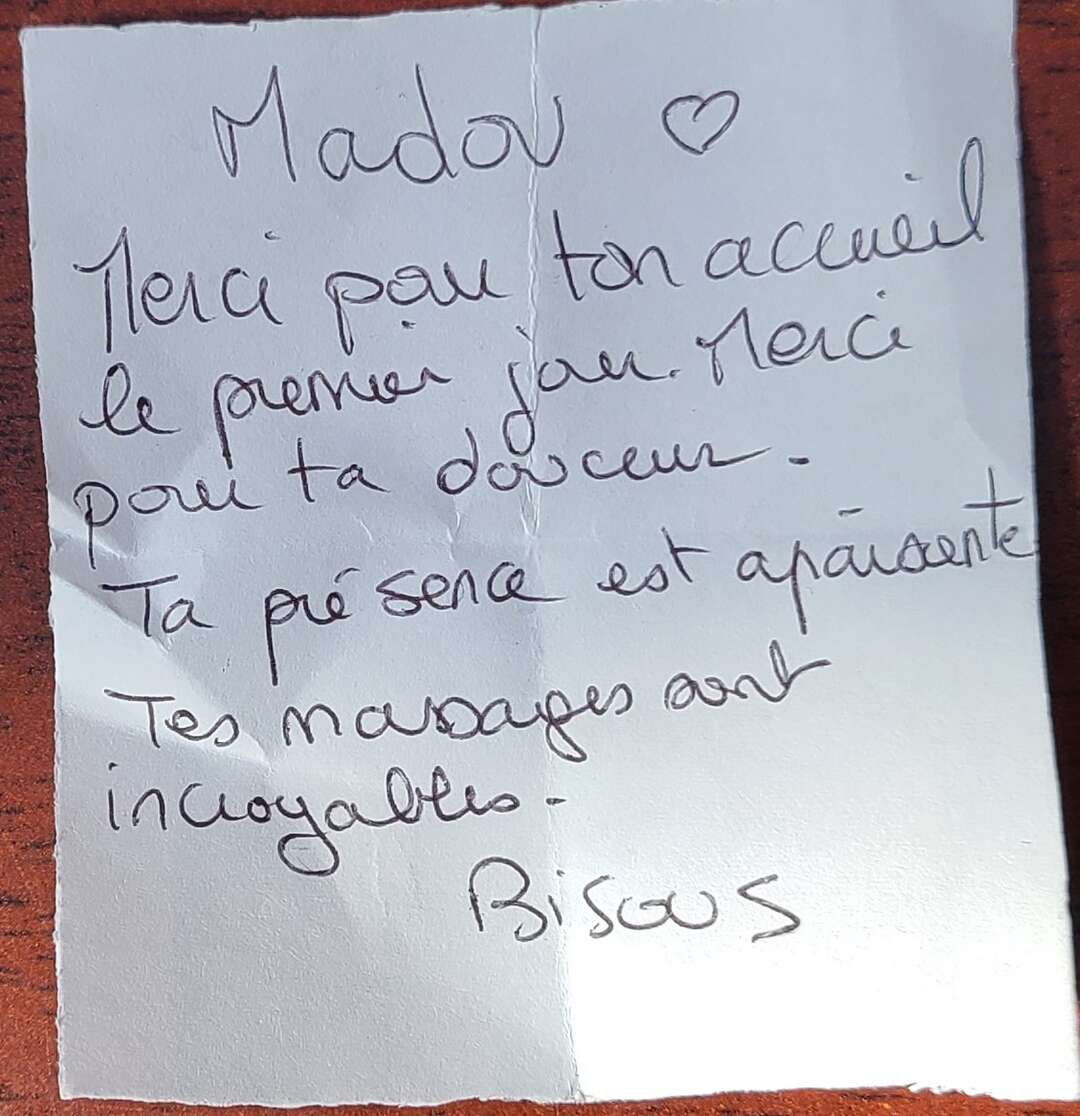 Madou ♡
Merci pour ton accueil
le premier jour. Merci
pour ta douceur.
Ta présence est apaisante
Tes massages sont
incroyables.
Bisous